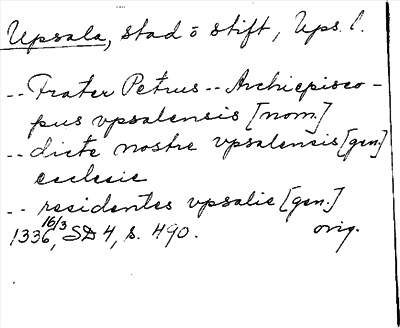 Upsala, stad o stift, Ups. l.
-- Frater Petrus -- Archiepisco-
pus vpsalensis [nom.]
-- dicte nostre vpsalensis [gen.]
ecclesie
-- residentes vpsalie [gen.]
1336 16/3, SD 4, s. 490. orig.